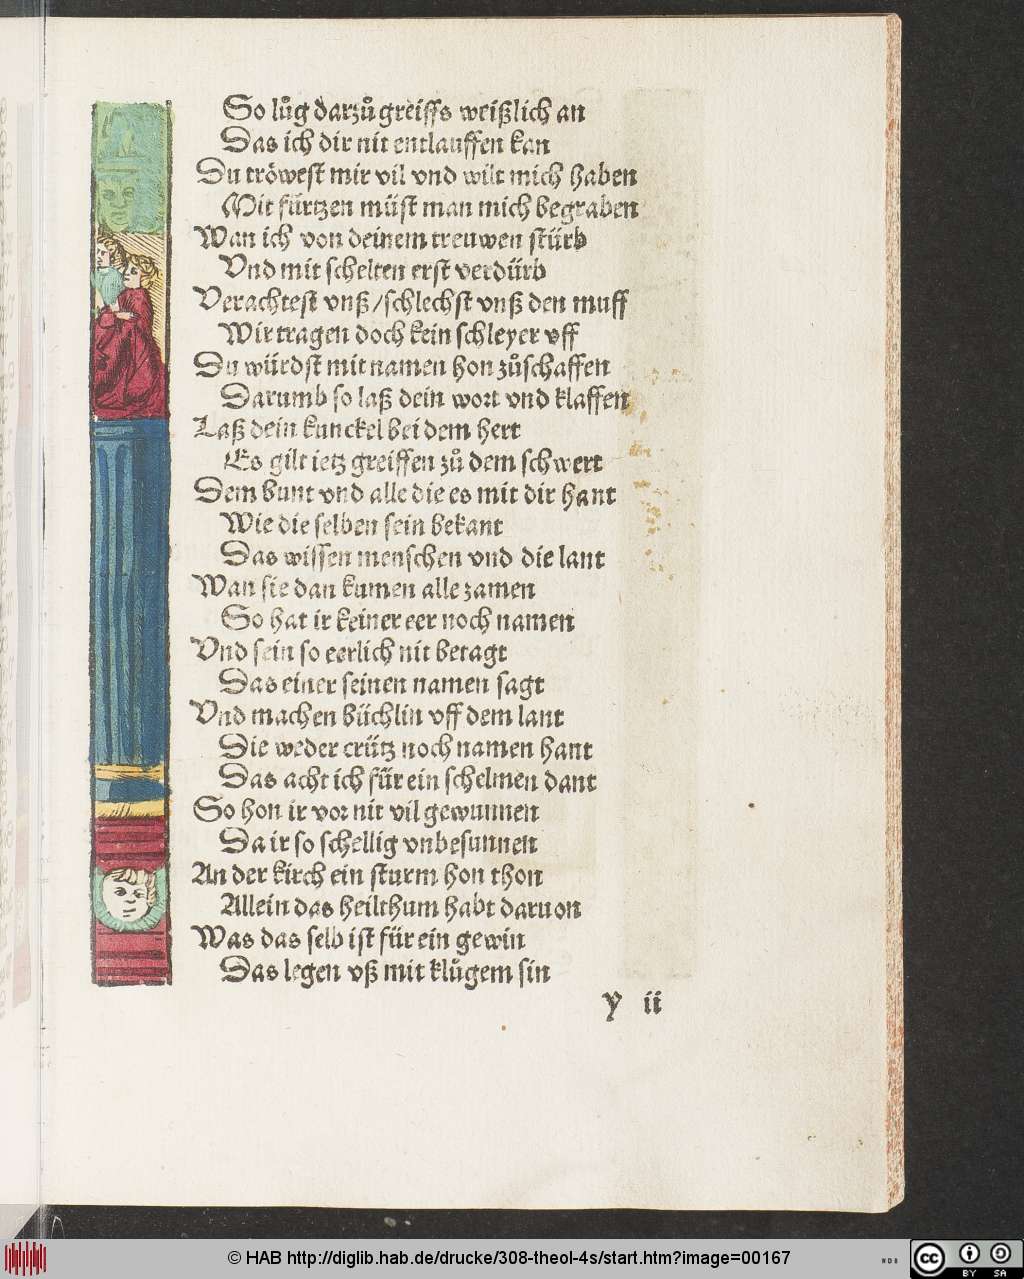 So lůg darzů greiffs weißlich an
Das ich dir nit entlauffen kan
Du tröwest mir vil vnd wilt mich haben
Mit fürtzen müst man mich begraben
Wan ich von deinem treuwen stürb
Vnd mit schelten erst verdürb
Verachtest vnß/schlechst vnß den muff
Wir tragen doch kein schleyer vff
Du würdst mit namen hon zůschaffen
Darumb so laß dein wort vnd klaffen
Laß dein kunckel bei dem hert
Es gilt ietz greiffen zů dem schwert
Dem bunt vnd alle die es mit dir hant
Wie die selben sein bekant
Das wissen menschen vnd die lant
Wan sie dan kumen alle zamen
So hat ir keiner eer noch namen
Vnd sein so eerlich nit betagt
Das einer seinen namen sagt
Vnd machen büchlin vff dem lant
Die weder crütz noch namen hant
Das acht ich für ein schelmen dant
So hon ir vor nit vil gewunnen
Da ir so schellig vnbesunnen
An der kirch ein sturm hon thon
Allein das heilthum habt daruon
Was das selb ist für ein gewin
Das legen vß mit klůgem sin
y ii
© HAB http://diglib.hab.de/drucke/308-theol-4s/start.htm?image=00167
WDB
cc BY SA